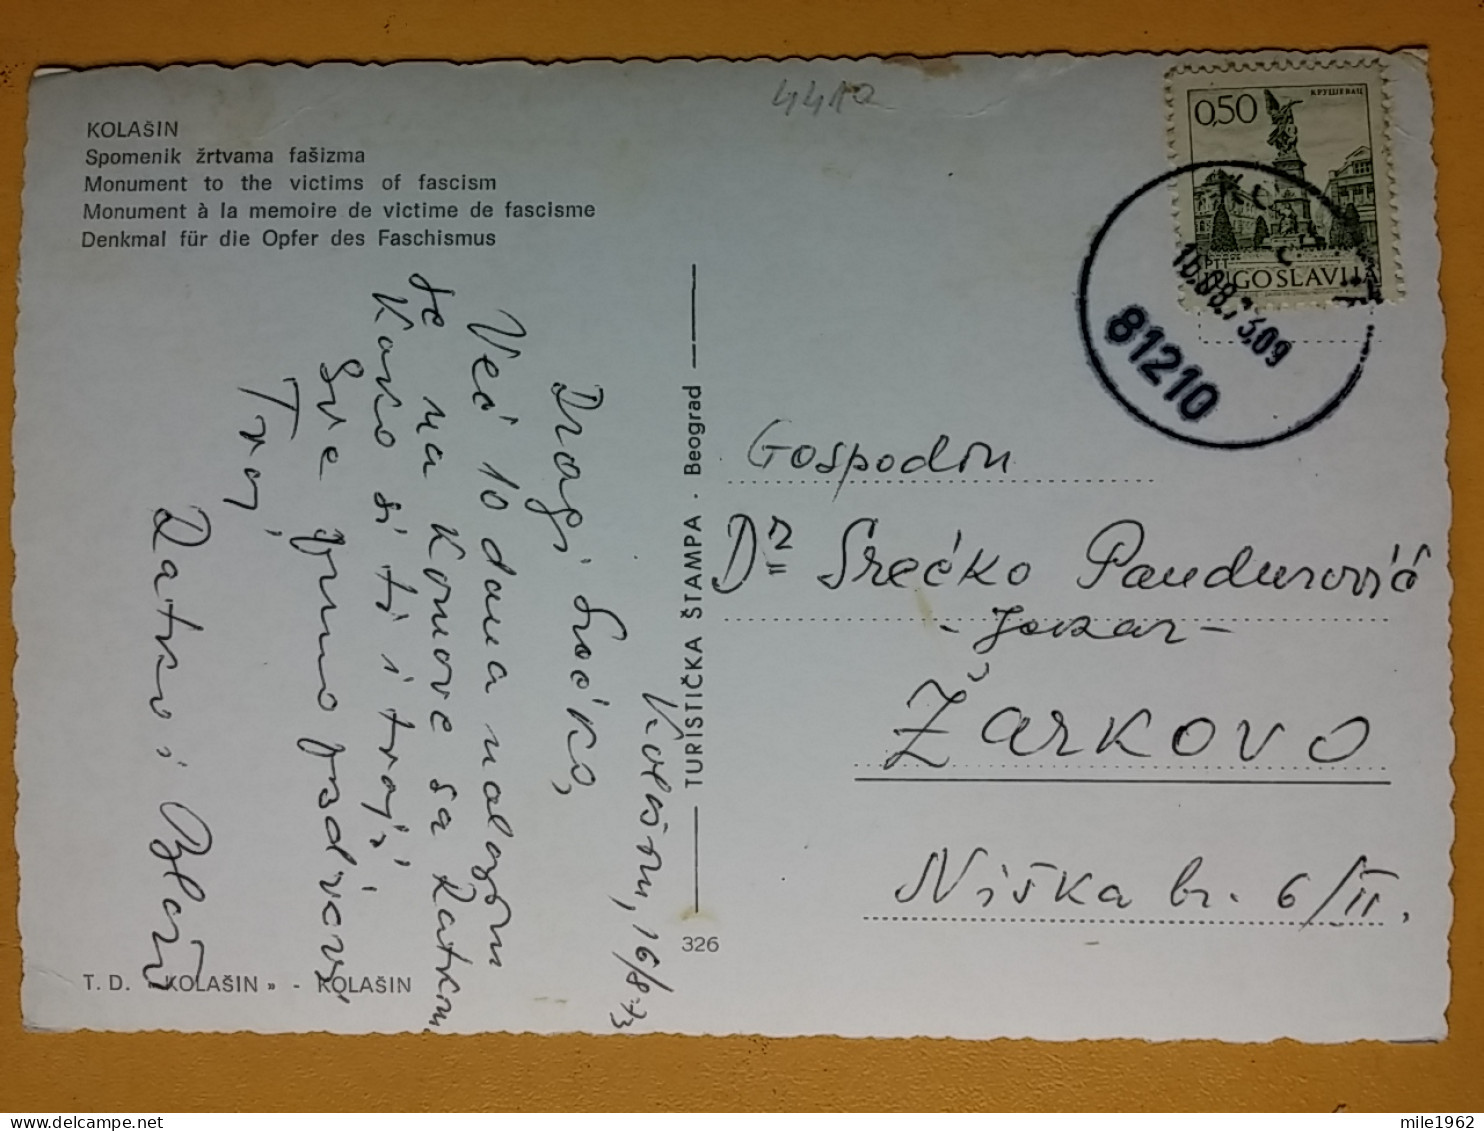 4412
KOLAŠIN
Spomenik žrtvama fašizma
Monument to the victims of fascism
Monument à la memoire de victime de fascisme
Denkmal für die Opfer des Faschismus
КРУШЕВАЦ
0,50
PTT
JUGOSLAVIJA
16.08.73.09
81210
Kolašin, 16/8-73
Dragi Srećko,
Već 10 dana nalazim
se na Komove sa Ratkom
Kako si ti i tvoji
Sve puno pozdravi
Tvoj
Ratko i
TURISTIČKA ŠTAMPA · Beograd
326
Gospodin
Dr Srećko Pandurović
ŽARKOVO
Niška br. 6/II.
T. D. «KOLAŠIN» - KOLAŠIN
mile1962